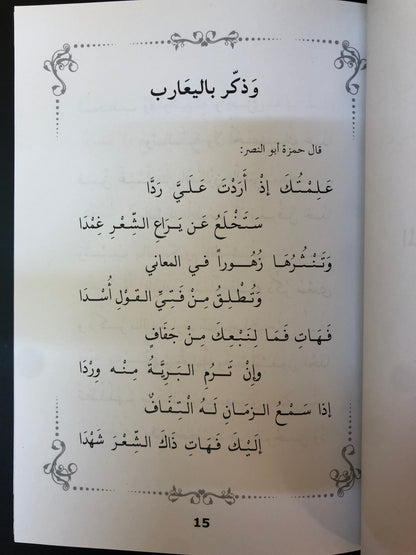 وَذكّر باليعَارب
قال حمزة أبو النصر:
عَلِمْتُكَ إذْ أَرَدْتَ عَلَيَّ رَدَّا
سَتَخْلَعُ عَن يَرَاعِ الشّعْرِ غِمْدَا
وَتَنْثُرُهَا زُهُوراً في المعاني
وَتُطْلِقُ مِنْ فَتِيِّ القوْلِ أُسْدَا
فَهَاتِ فَمَا لِنَبْعِكَ مِنْ جَفَافٍ
وإنْ تَرُمِ البَرِيَّةُ مِنه وِرْدَا
إذا سَمْعُ الزمَانِ لَهُ الْتِفَافٌ
إلَيْكَ فَهَاتِ ذَاكَ الشّعْرَ شَهْدَا
15